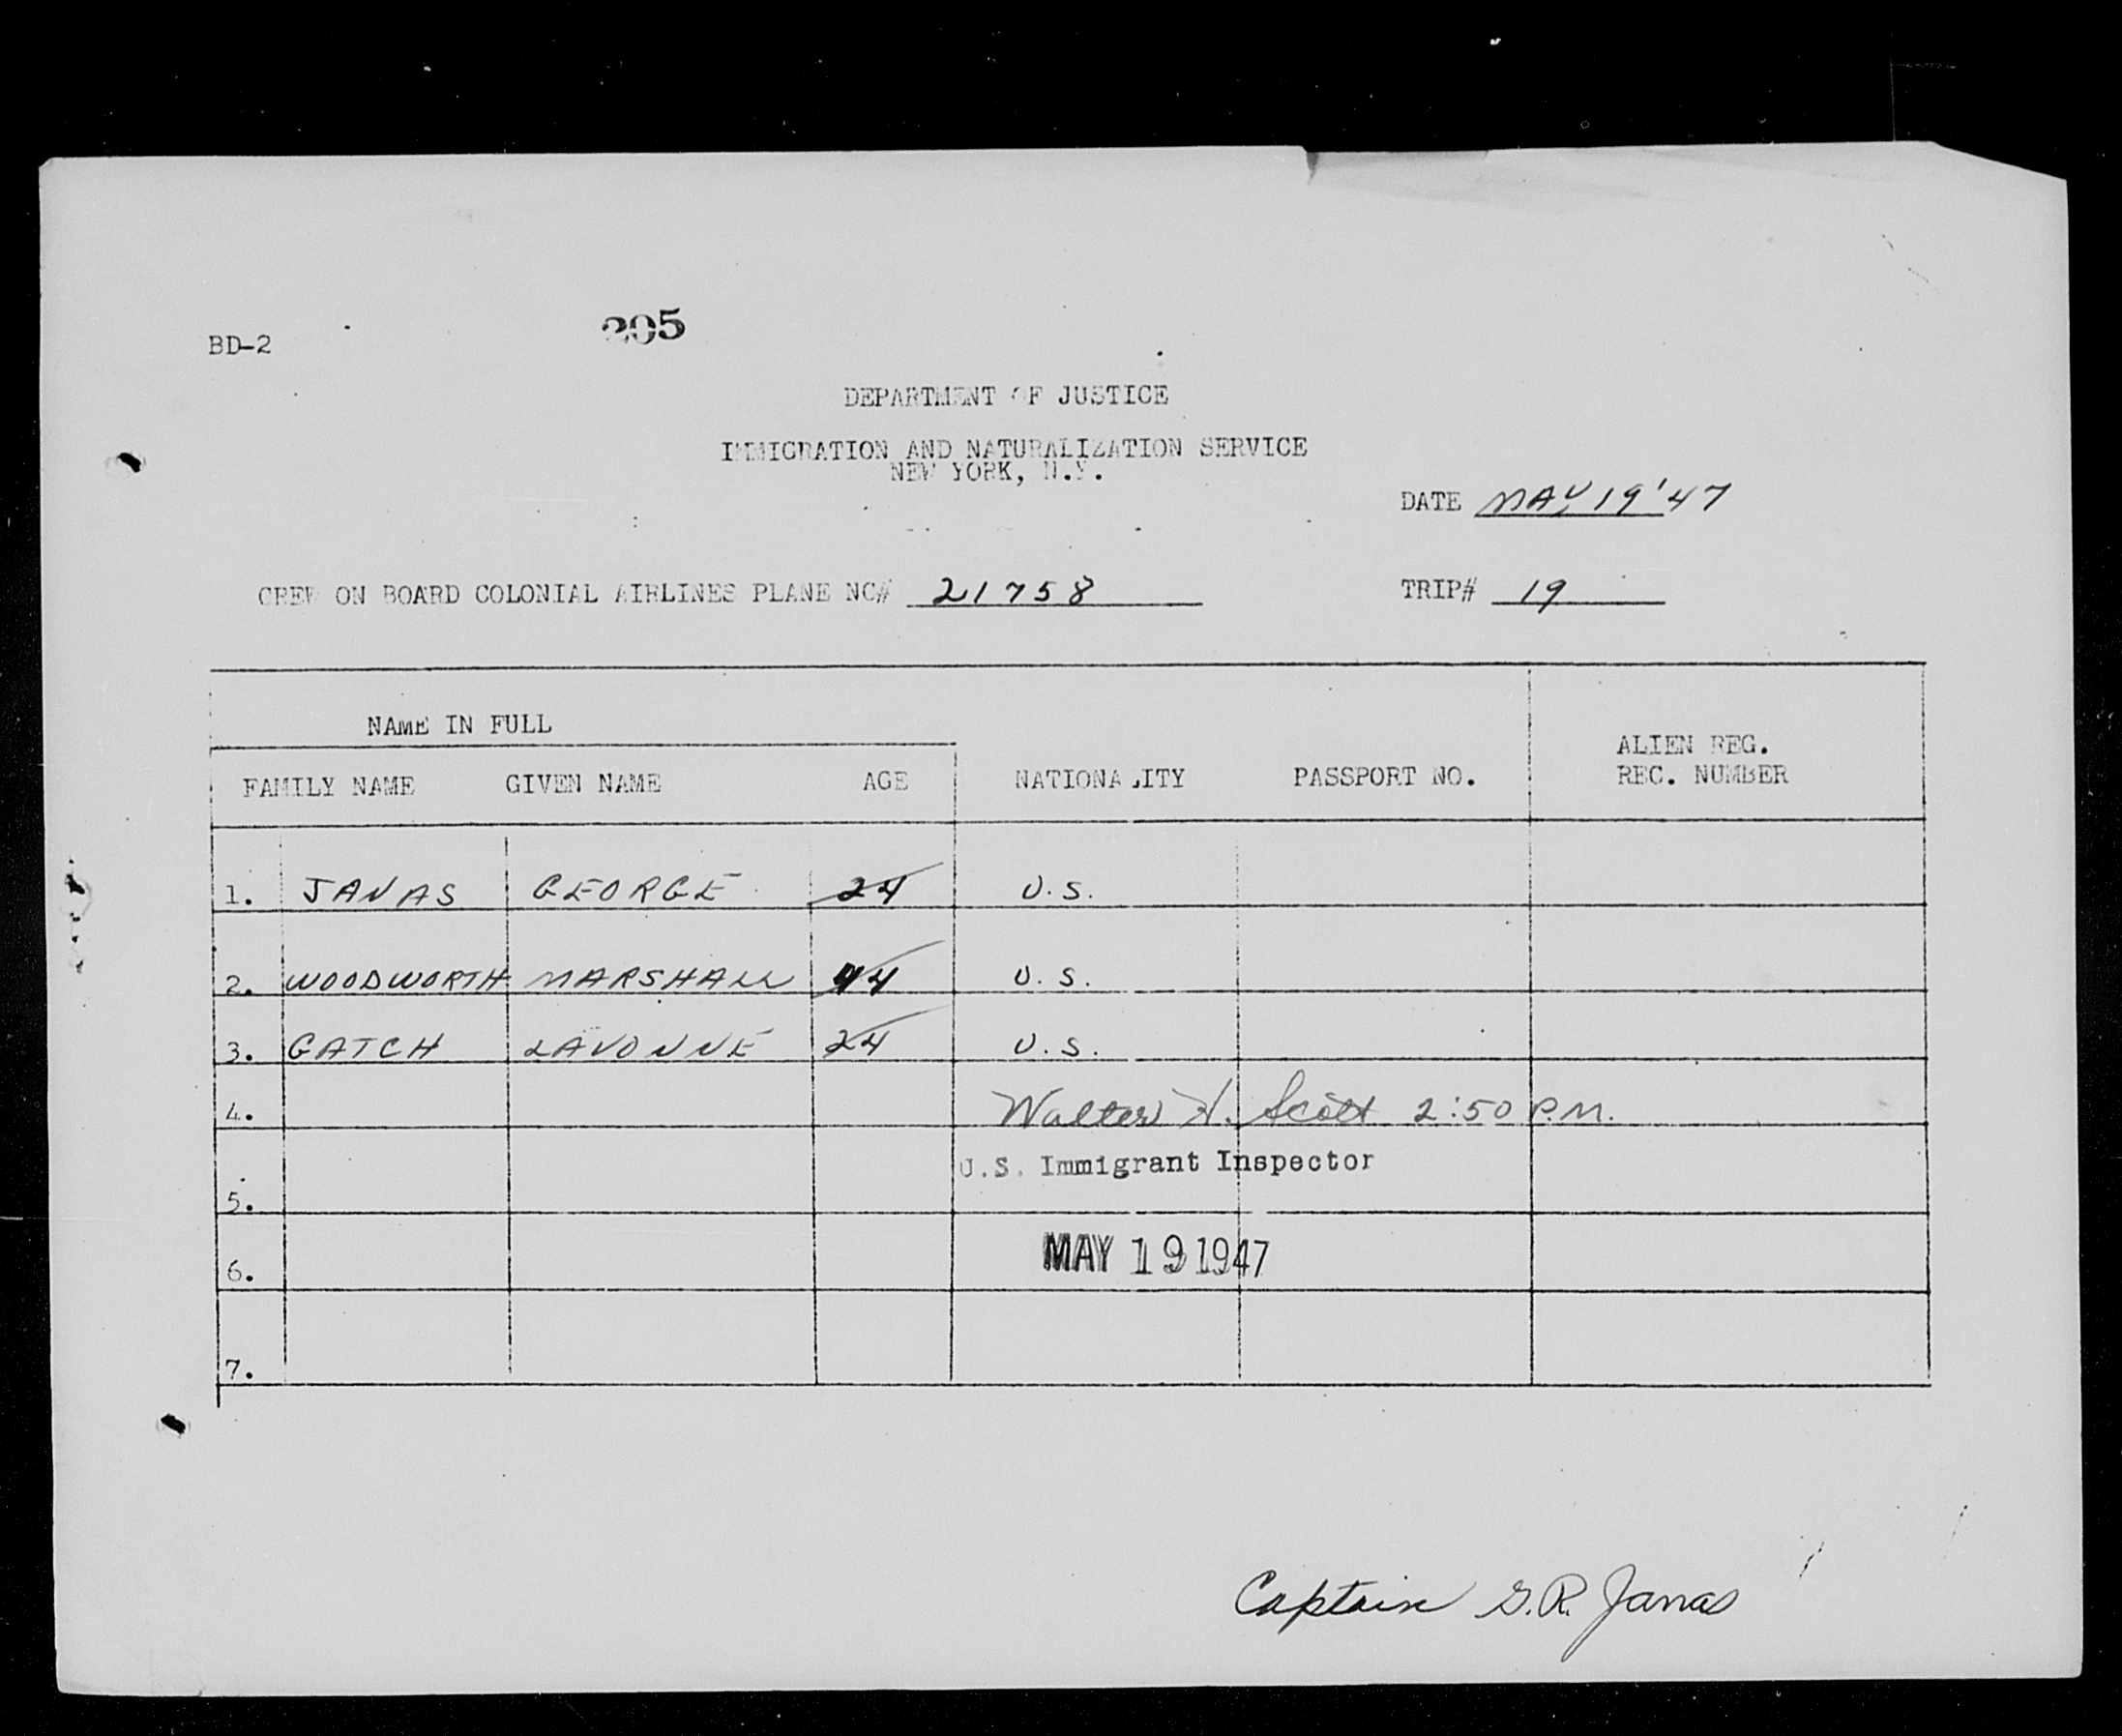 BD-2
205
DEPARTMENT OF JUSTICE
IMMIGRATION AND NATURALIZATION SERVICE
NEW YORK, N.Y.
DATE MAY 19 '47
CREW ON BOARD COLONIAL AIRLINES PLANE NC# 21758 TRIP# 19
NAME IN FULL
FAMILY NAME GIVEN NAME AGE NATIONALITY PASSPORT NO. ALIEN REG. REC. NUMBER
1. JANAS GEORGE 24 U.S.
2. WOODWORTH MARSHALL 44 U.S.
3. GATCH LAVONNE 24 U.S.
4. Walter H. Scott 2:50 P.M.
U.S. Immigrant Inspector
5.
MAY 19 1947
6.
7.
Captain G.R. Janas